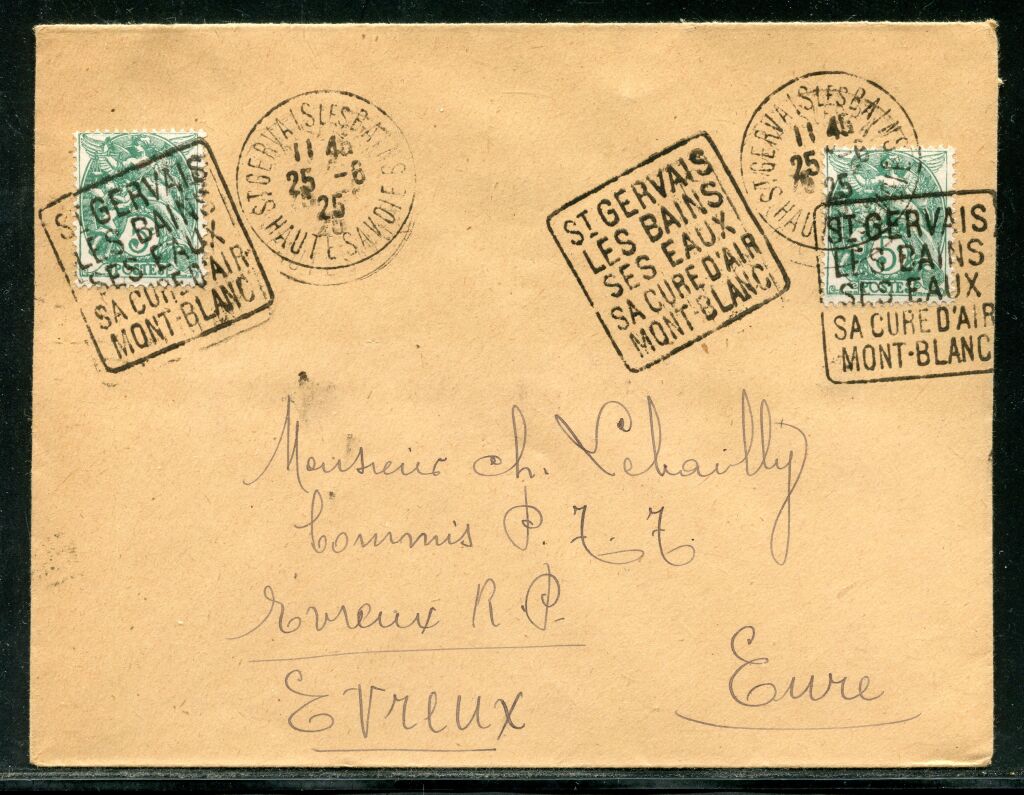 ST GERVAIS LES BAINS
11 45
25 -6
25
HAUTE SAVOIE
ST GERVAIS LES BAINS
11 45
25 -6
25
HAUTE
ST GERVAIS
LES BAINS
SES EAUX
SA CURE D'AIR
MONT-BLANC
5
POSTE
ST GERVAIS
LES BAINS
SES EAUX
SA CURE D'AIR
MONT-BLANC
ST GERVAIS
LES BAINS
SES EAUX
SA CURE D'AIR
MONT-BLANC
5
POSTE
Monsieur Ch. Lebailly
Commis P. T. T.
Evreux R. P.
Evreux
Eure